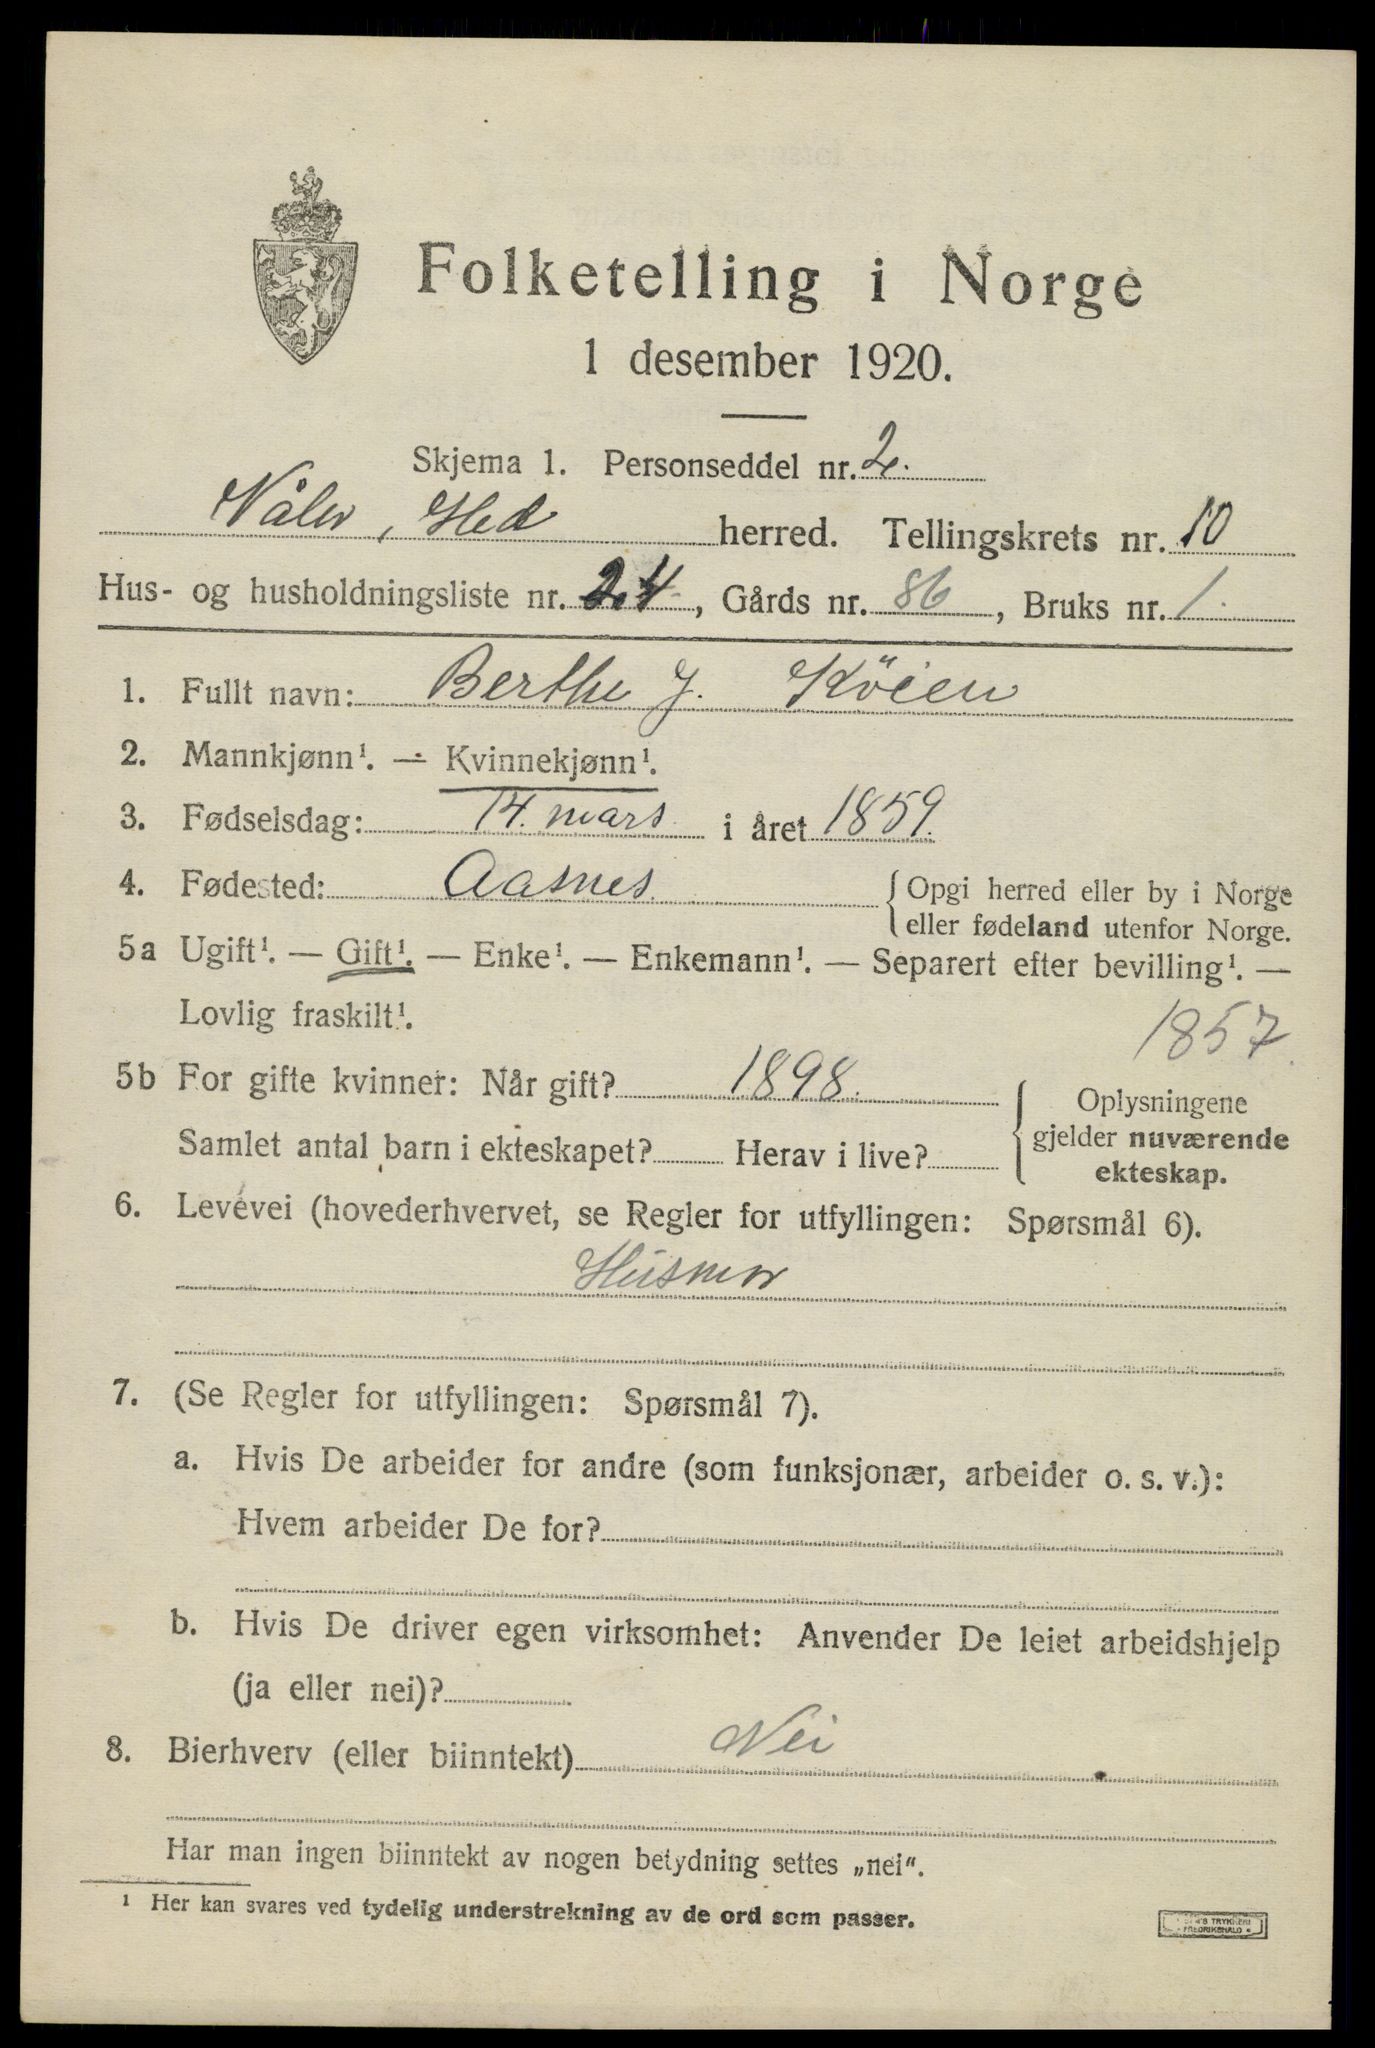 Folketelling i Norge
1 desember 1920.
Skjema 1. Personseddel nr. 2.
Våler, Hed herred. Tellingskrets nr. 10
Hus- og husholdningsliste nr. 24, Gårds nr. 86, Bruks nr. 1.
1. Fullt navn: Berthe J. Köien
2. Mannkjønn¹. — Kvinnekjønn¹.
3. Fødselsdag: 14. mars i året 1859.
4. Fødested: Aasnes. {Opgi herred eller by i Norge
eller fødeland utenfor Norge.
5a Ugift¹. — Gift¹. — Enke¹. — Enkemann¹. — Separert efter bevilling¹. —
Lovlig fraskilt¹.
1857.
5b For gifte kvinner: Når gift? 1898. Oplysningene
gjelder nuværende
Samlet antal barn i ekteskapet? Herav i live? ekteskap.
6. Levevei (hovederhvervet, se Regler for utfyllingen: Spørsmål 6).
Husmor
7. (Se Regler for utfyllingen: Spørsmål 7).
a. Hvis De arbeider for andre (som funksjonær, arbeider o. s. v.):
Hvem arbeider De for?
b. Hvis De driver egen virksomhet: Anvender De leiet arbeidshjelp
(ja eller nei)?
8. Bierhverv (eller biinntekt) Nei
Har man ingen biinntekt av nogen betydning settes „nei“.
¹ Her kan svares ved tydelig understrekning av de ord som passer.
TRYKKERI
FREDRIKSHALD